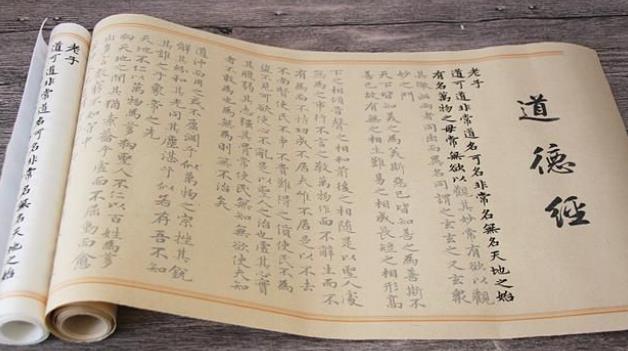 道德經
老子
道可道非常道名可名非常名無名天地之始
有名萬物之母常無欲以觀其妙常有欲以觀
其徼此兩者同出而異名同謂之玄玄之又玄衆
妙之門
天下皆知美之為美斯惡已皆知善之為善斯不
善已故有無之相生難易之相成長短之相形高
下之相傾音聲之相和前後之相隨是以聖人處
無為之事行不言之教萬物作而不辭生而不
有為而不恃功成不居夫唯不居是以不去
不尚賢使民不爭不貴難得之貨使民不為
盜不見可欲使心不亂是以聖人之治也虛其心實
其腹弱其志強其骨常使民無知無欲使夫知
者不敢為也為無為則無不治矣
道沖而用之或不盈淵乎似萬物之宗挫其銳
解其紛和其光同其塵湛乎似若存吾不知
其誰之子象帝之先
天地不仁以萬物為芻狗聖人不仁以百姓為芻
狗天地之間其猶橐籥乎虛而不屈動而愈
出多言數窮不如守中
老子
道可道非常道名可名非常名無名天地之始